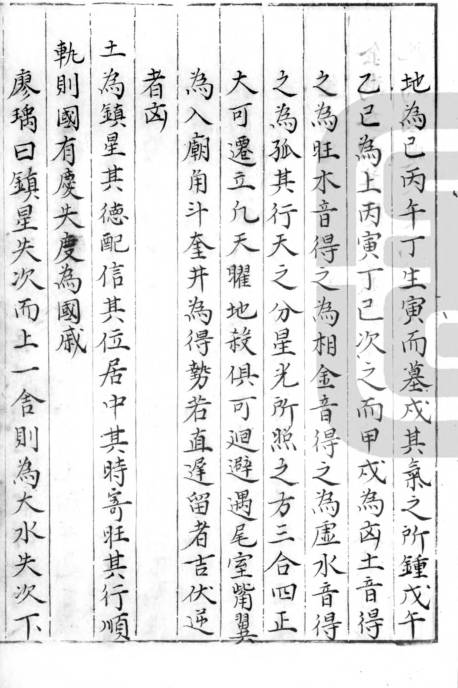 地為巳丙午丁生寅而墓戌其氣之所鍾戊午
乙巳為上丙寅丁巳次之而甲戌為凶土音得
之為旺木音得之為相金音得之為虛水音得
之為孤其行天之分星光所照之方三合四正
大可遷立凡天曜地殺俱可迴避遇尾室觜翼
為入廟角斗奎井為得勢若直遲留者吉伏逆
者凶
土為鎮星其德配信其位居中其時寄旺其行順
軌則國有慶失度為國戚
廖瑀曰鎮星失次而上一舍則為大水失次下